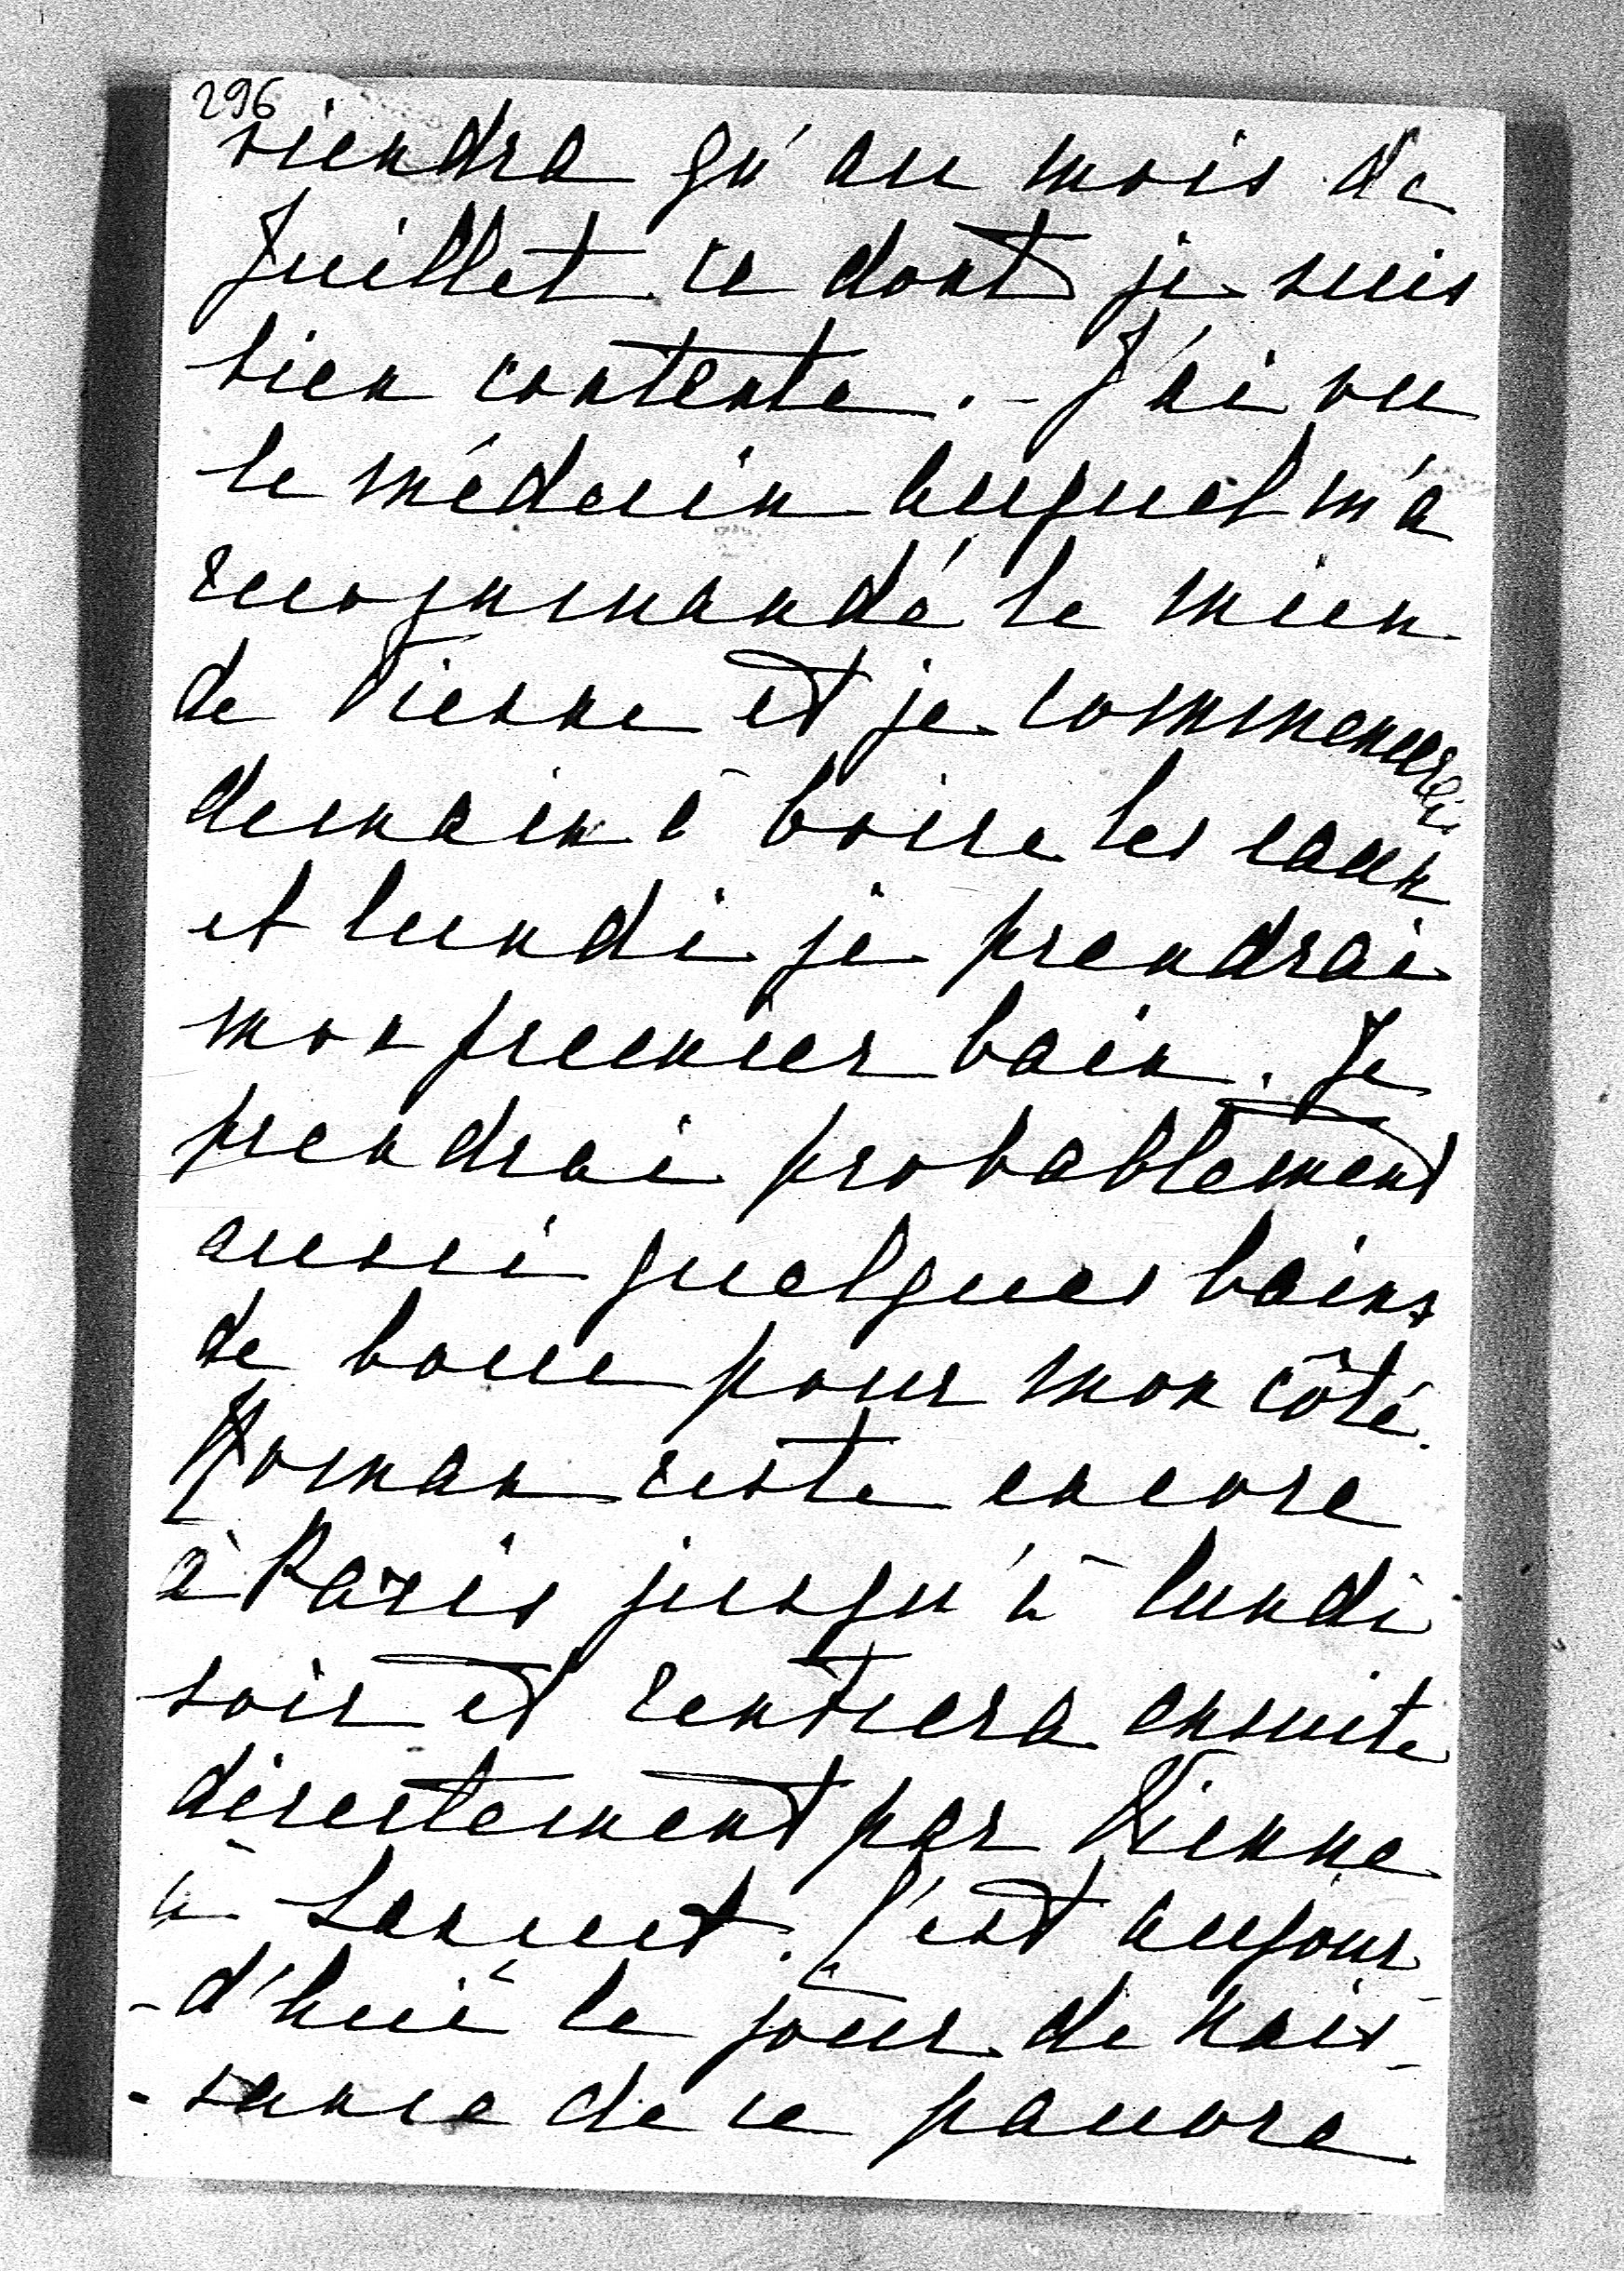 296
viendra qu'au mois de
Juillet ce dont je suis
bien contente. - J'ai vu
le médecin auquel m'a
recommandé le mien
de Vienne et je commencerai
demain à boire les eaux
et lundi je prendrai
mon premier bain. Je
prendrai probablement
aussi quelques bains
de boue pour mon côté.
Roman reste encore
à Paris jusqu'à lundi
soir et rentrera ensuite
directement par Vienne
à Łańcut. C'est aujour-
-d'hui le jour de nais-
-sance de ce pauvre